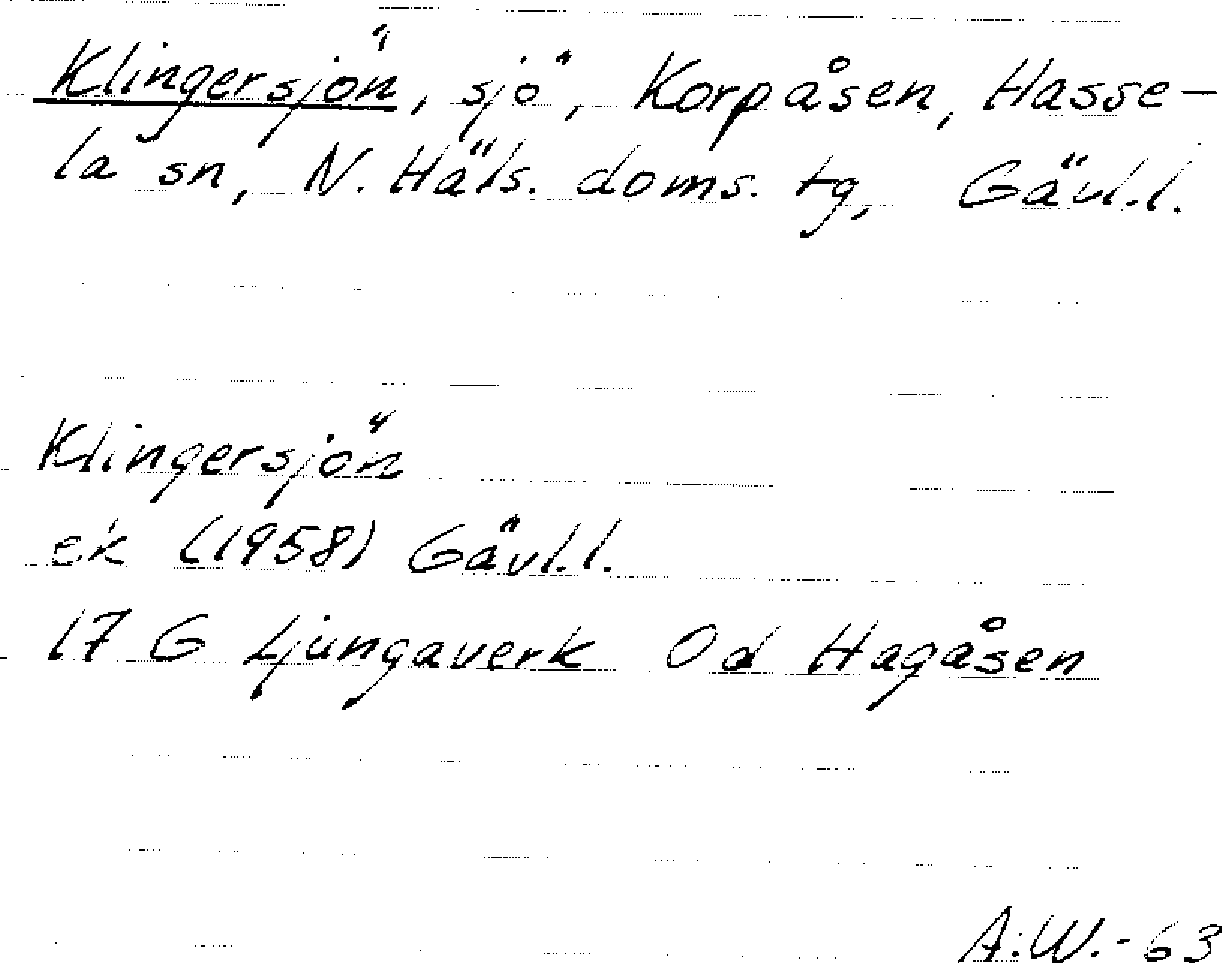 Klingersjön, sjö, Korpåsen, Hasse-
la sn, N. Häls. doms. tg, Gävl.l.
Klingersjön
ek (1958) Gävl.l.
17 G Ljungaverk Od Hagåsen
A.W.-63